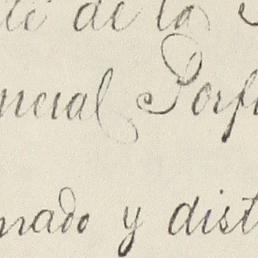 te de la
neral Porf
nado y dist